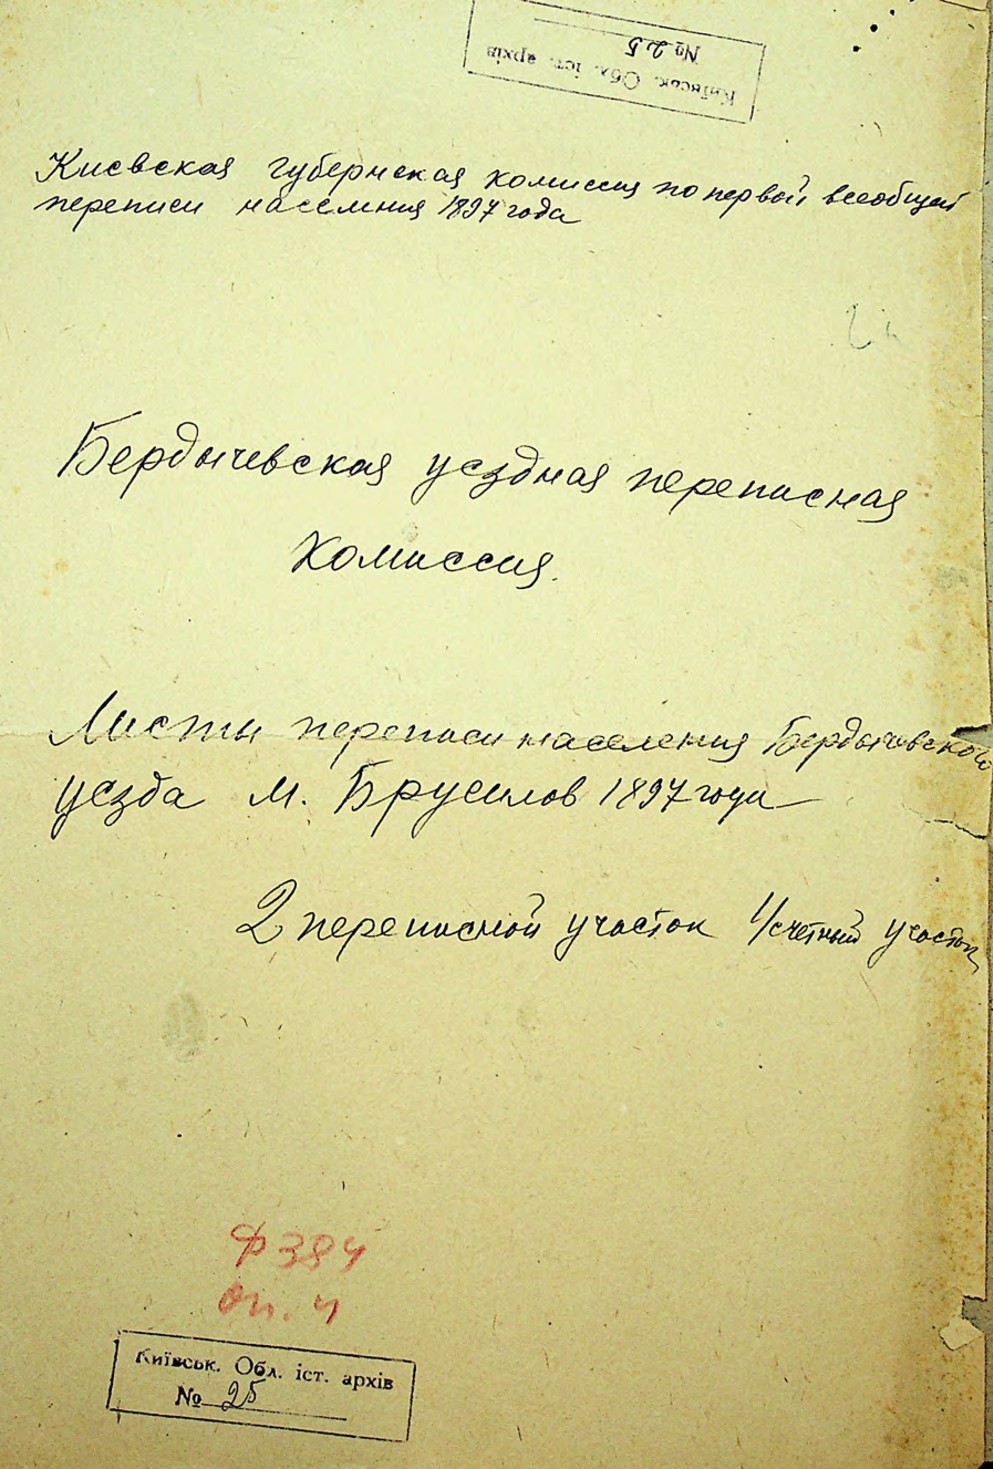 Київськ. Обл. іст. архів
№ 25
Киевская губернская комиссия по первой всеобщей
переписи населения 1897 года
Бердычевская уездная переписная
комиссия.
Листы переписи населения Бердычевского
уезда м. Брусилов 1897 года
2 переписной участок 1/счетный участок
Ф 384
оп. 4
Київськ. Обл. іст. архів
№ 25